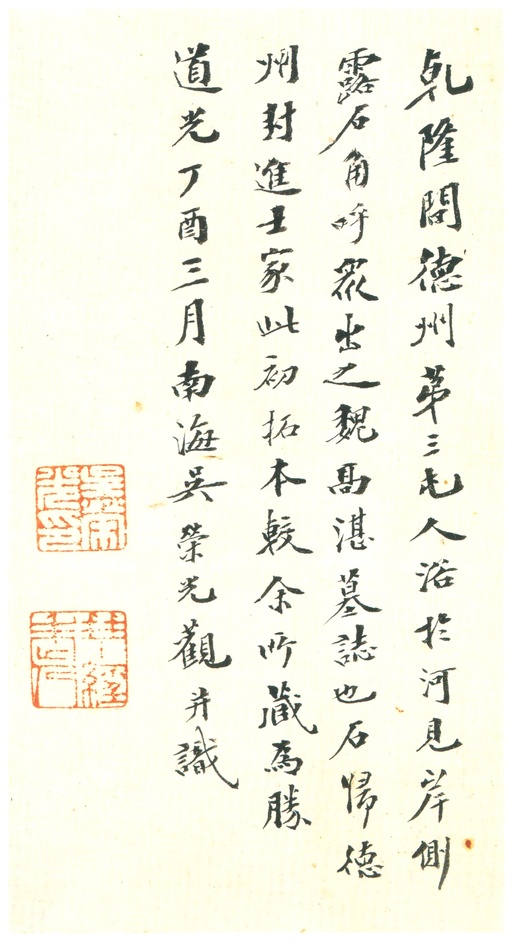 乹隆間德州第三屯人浴於河見岸側
露石角呼眾出之魏高湛墓誌也石歸德
州封進士家此初拓本較余所藏為勝
道光丁酉三月南海吳榮光觀并識
吳榮光印